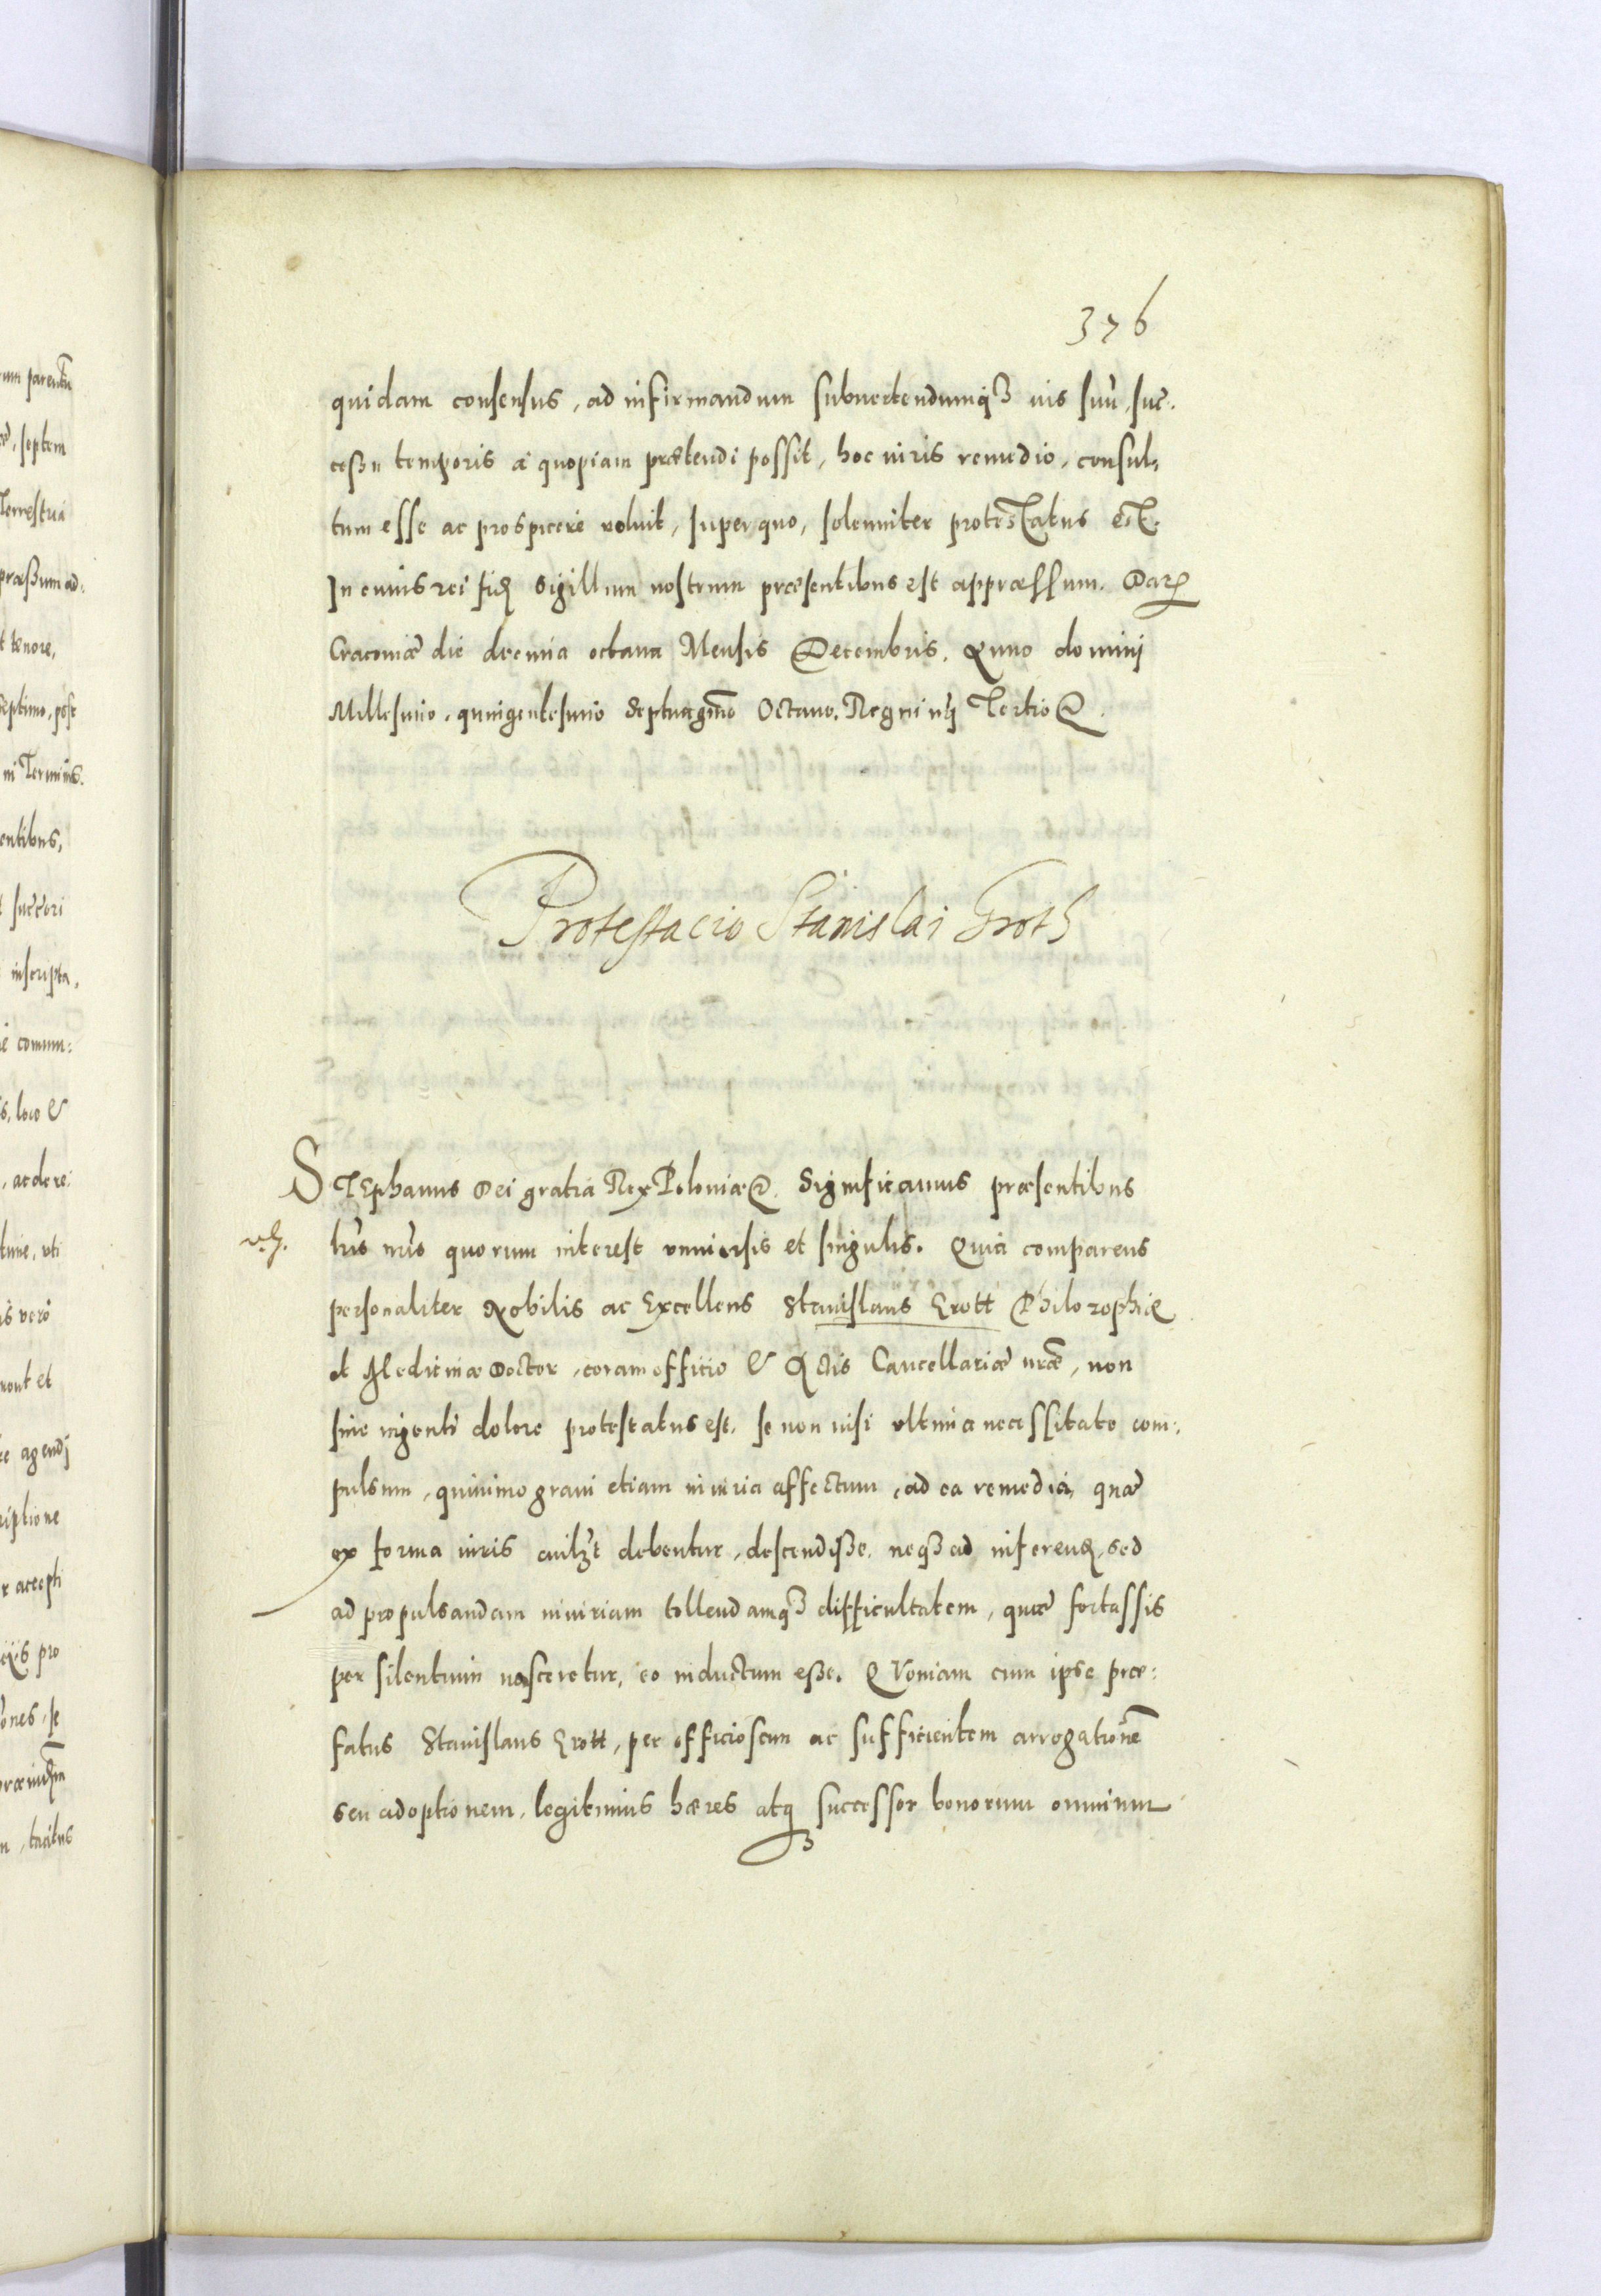 376
quidam consensus, ad infirmandum subuertendumq3 ius suũ, suc:
cessu temporis a quopiam prætendi possit, hoc iuris remedio, consul,
tum esse ac prospicere voluit, super quo, solenniter protestatus est.
In cuius rei fid sigillum nostrum præsentibus est appræssum. Dat
Cracouiæ die decima octaua Mensis Decembris. Anno dominj
Millesimo, quingentesimo septuagmo Octauo. Regni nri Tertio &.
Protestacio Stanislai Groth
STEphanus Dei gratia Rex Poloniæ &. Significamus præsentibus
lris nris quorum interest vniuersis et singulis. Quia comparens
personaliter Nobilis ac Excellens Stanislaus Grott Philozophiæ
et Medicinæ Doctor, coram officio & Actis Cancellariæ nræ, non
sine ingenti dolore protestatus est, se non nisi vltima necessitate com:
pulsum, quinimo graui etiam iniuria affectum, ad ea remedia, quæ
ex forma iuris cuilzt debentur, descendisse, neq3 ad inferend, sed
ad propulsandam iniuriam tollendamq3 difficultatem, quæ fortassis
per silentium nasceretur, eo inductum esse. QVoniam cum ipse præ:
fatus Stanislaus Grott, per officiosam ac sufficientem arrogationẽ
seu adoptionem, legitimus hæres atq3 successor bonorum omnium
um parentũ
septem
Terrestria
præssum ad:
t tenore,
septimo, post
ni Terminis.
entibus,
inscripta,
comun:
s, loco &
, ac de re:
is vero
nont et
re agendj
riptione
r accepti
eijs pro
ones, se
n, tacitus